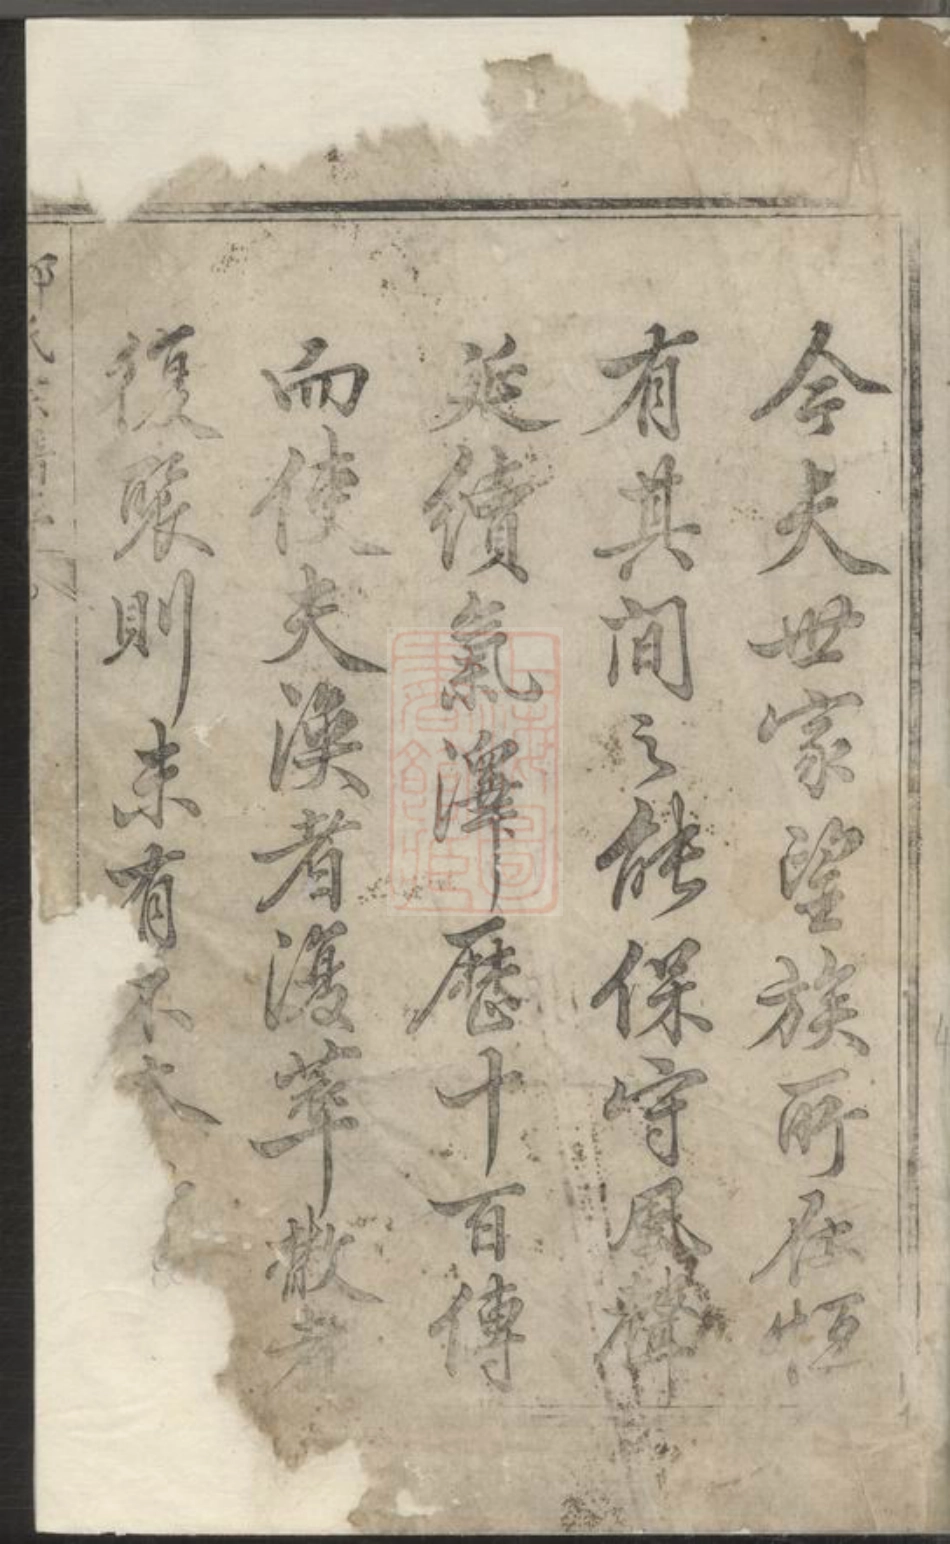 今夫世家望族所在恒
有其间之能保守風聲
延續氣澤歷十百傳
而使夫渙者復萃散者
復聚則未有不大
氏